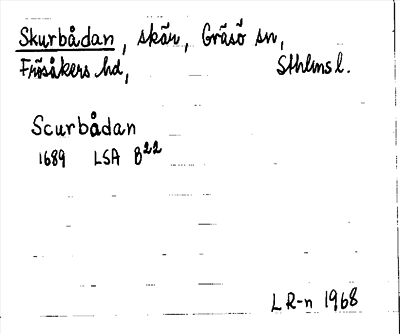 Skurbådan, skär, Gräsö sn,
Frösåkers hd, Sthlms l.
Scurbådan
1689 LSA B22
LR-n 1968